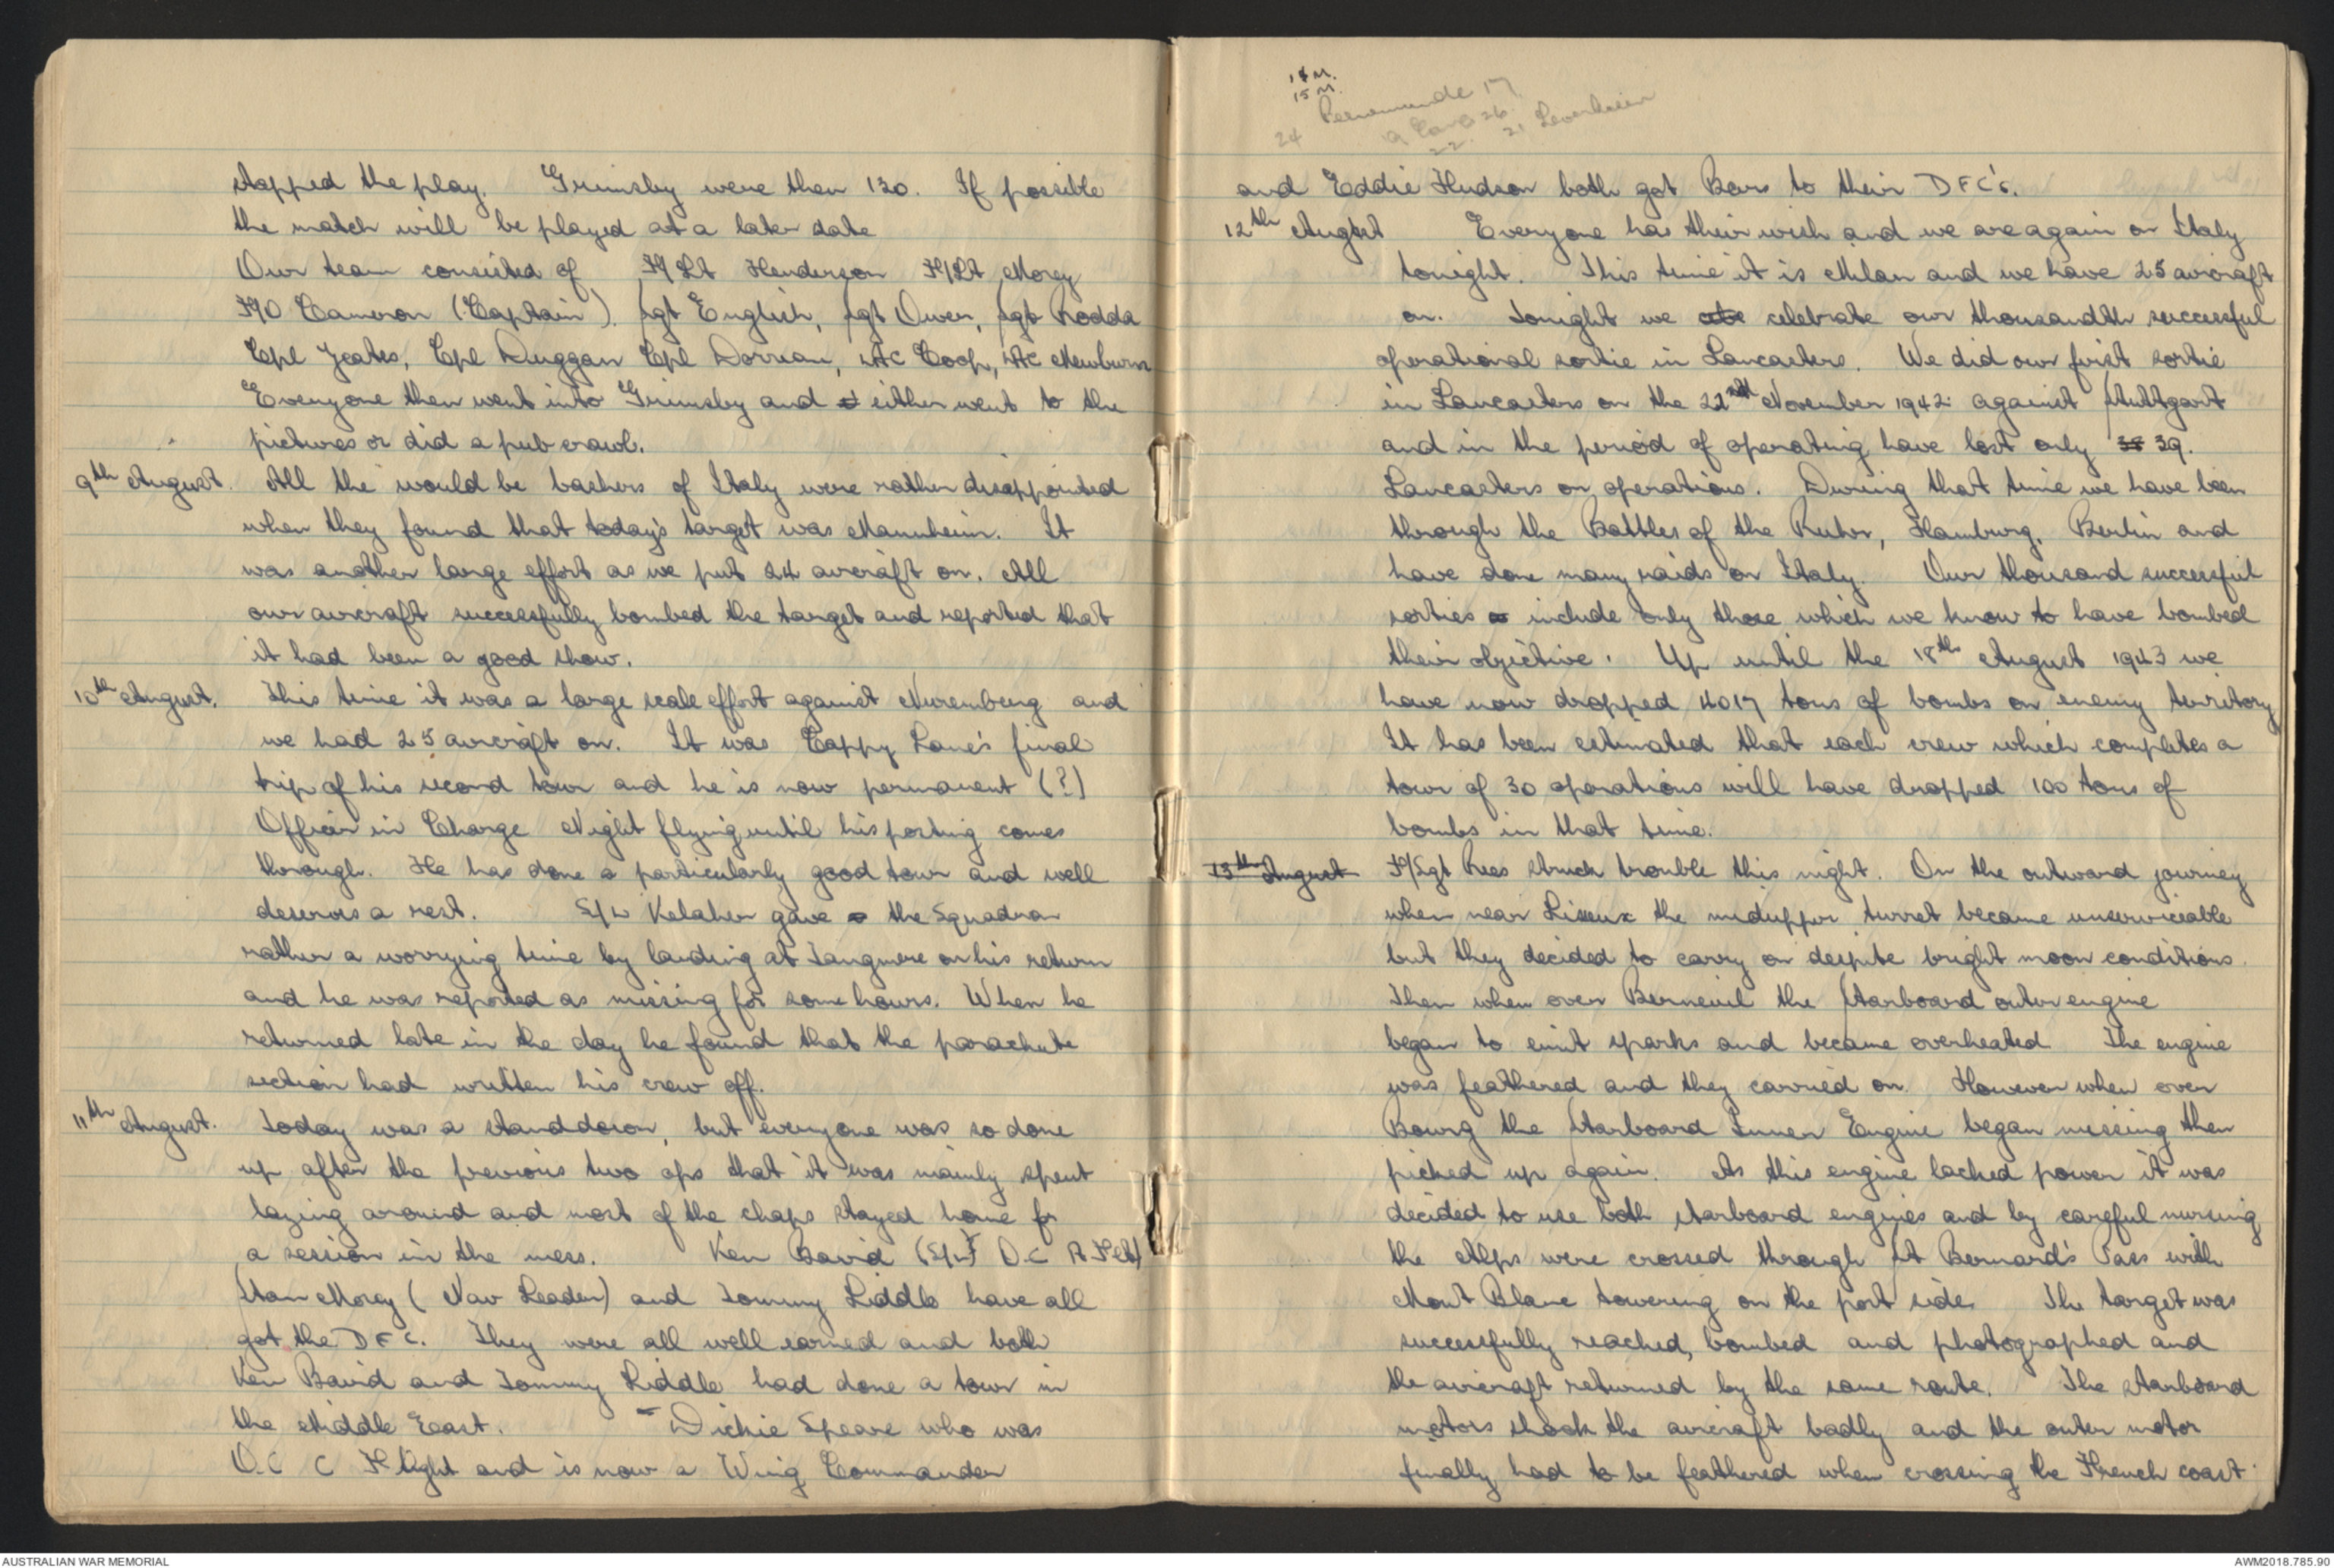 stopped the play. Grimsby were then 130. If possible
the match will be played at a later date
Our team consisted of F/Lt Henderson F/Lt Morey
F/O Cameron (Captain). Sgt English, Sgt Owen, Sgt Rodda
Cpl Yeates, Cpl Duggan Cpl Dorrian, LAC Coop, LAC Newburn
Everyone then went into Grimsby and either went to the
pictures or did a pub crawl.
9th August. All the would be bashers of Italy were rather disappointed
when they found that today's target was Mannheim. It
was another large effort as we put 24 aircraft on. All
our aircraft successfully bombed the target and reported that
it had been a good show.
10th August. This time it was a large scale effort against Nuremberg and
we had 25 aircraft on. It was Cappy Lane's final
trip of his second tour and he is now permanent (?)
Officer in Charge Night flying until his posting comes
through. He has done a particularly good tour and well
deserves a rest. S/Ldr Kelaher gave the Squadron
rather a worrying time by landing at Tangmere on his return
and he was reported as missing for some hours. When he
returned late in the day he found that the parachute
section had written his crew off.
11th August. Today was a stand down, but everyone was so done
up after the previous two ops that it was mainly spent
lazing around and most of the chaps stayed home for
a session in the mess. Ken Baird (S/Ldr O.C A Flt)
Stan Morey (Nav Leader) and Tommy Liddle have all
got the DFC. They were all well earned and both
Ken Baird and Tommy Liddle had done a tour in
the Middle East. - Dickie Speare who was
O.C C Flight and is now a Wing Commander
14 M.
15 M.
Peenemunde 17
24
26
22
21 Leverkusen
and Eddie Hudson both got Bars to their DFC's.
12th August Everyone has their wish and we are again on Italy
tonight. This time it is Milan and we have 25 aircraft
on. Tonight we celebrate our thousandth successful
operational sortie in Lancasters. We did our first sortie
in Lancasters on the 22nd November 1942 against Stuttgart
and in the period of operating have lost only 38 39.
Lancasters on operations. During that time we have been
through the Battles of the Ruhr, Hamburg, Berlin and
have done many raids on Italy. Our thousand successful
sorties include only those which we know to have bombed
their objective. Up until the 18th August 1943 we
have now dropped 4017 tons of bombs on enemy territory
It has been estimated that each crew which completes a
tour of 30 operations will have dropped 100 tons of
bombs in that time.
13th August F/Sgt Rees struck trouble this night. On the outward journey
when near Lisieux the midupper turret became unserviceable
but they decided to carry on despite bright moon conditions.
Then when over Berneuil the Starboard outer engine
began to emit sparks and became overheated The engine
was feathered and they carried on. However when over
Bourg the Starboard Inner Engine began missing then
picked up again. As this engine lacked power it was
decided to use both starboard engines and by careful nursing
the Alps were crossed through St Bernard's Pass with
Mont Blanc towering on the port side. The target was
successfully reached, bombed and photographed and
the aircraft returned by the same route. The starboard
motors shook the aircraft badly and the outer motor
finally had to be feathered when crossing the French coast.
AUSTRALIAN WAR MEMORIAL
AWM2018.785.90